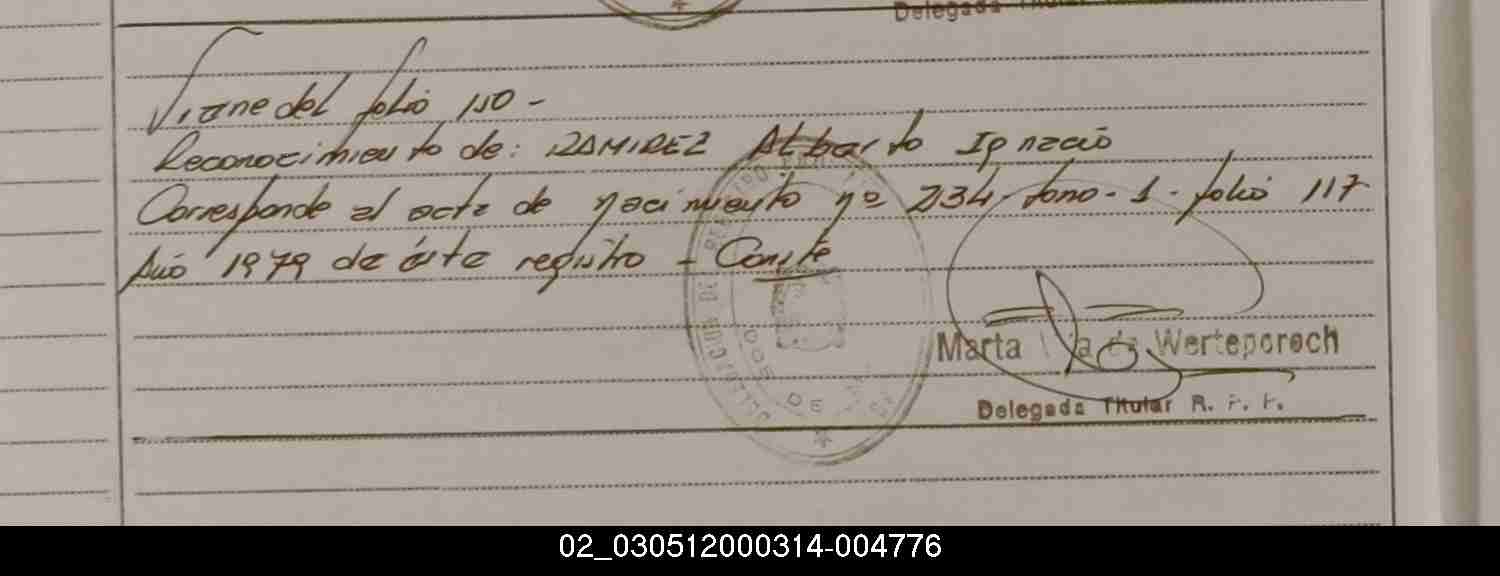 Delegada Titular
Viene del folio 150 -
Reconocimiento de: RAMIREZ Alberto Ignacio
Corresponde al acta de nacimiento nº 234 - tomo - 1 - folio 117
Año 1979 de éste registro - Conste
Marta de Werteporoch
Delegada Titular R. P. P.
02_030512000314-004776